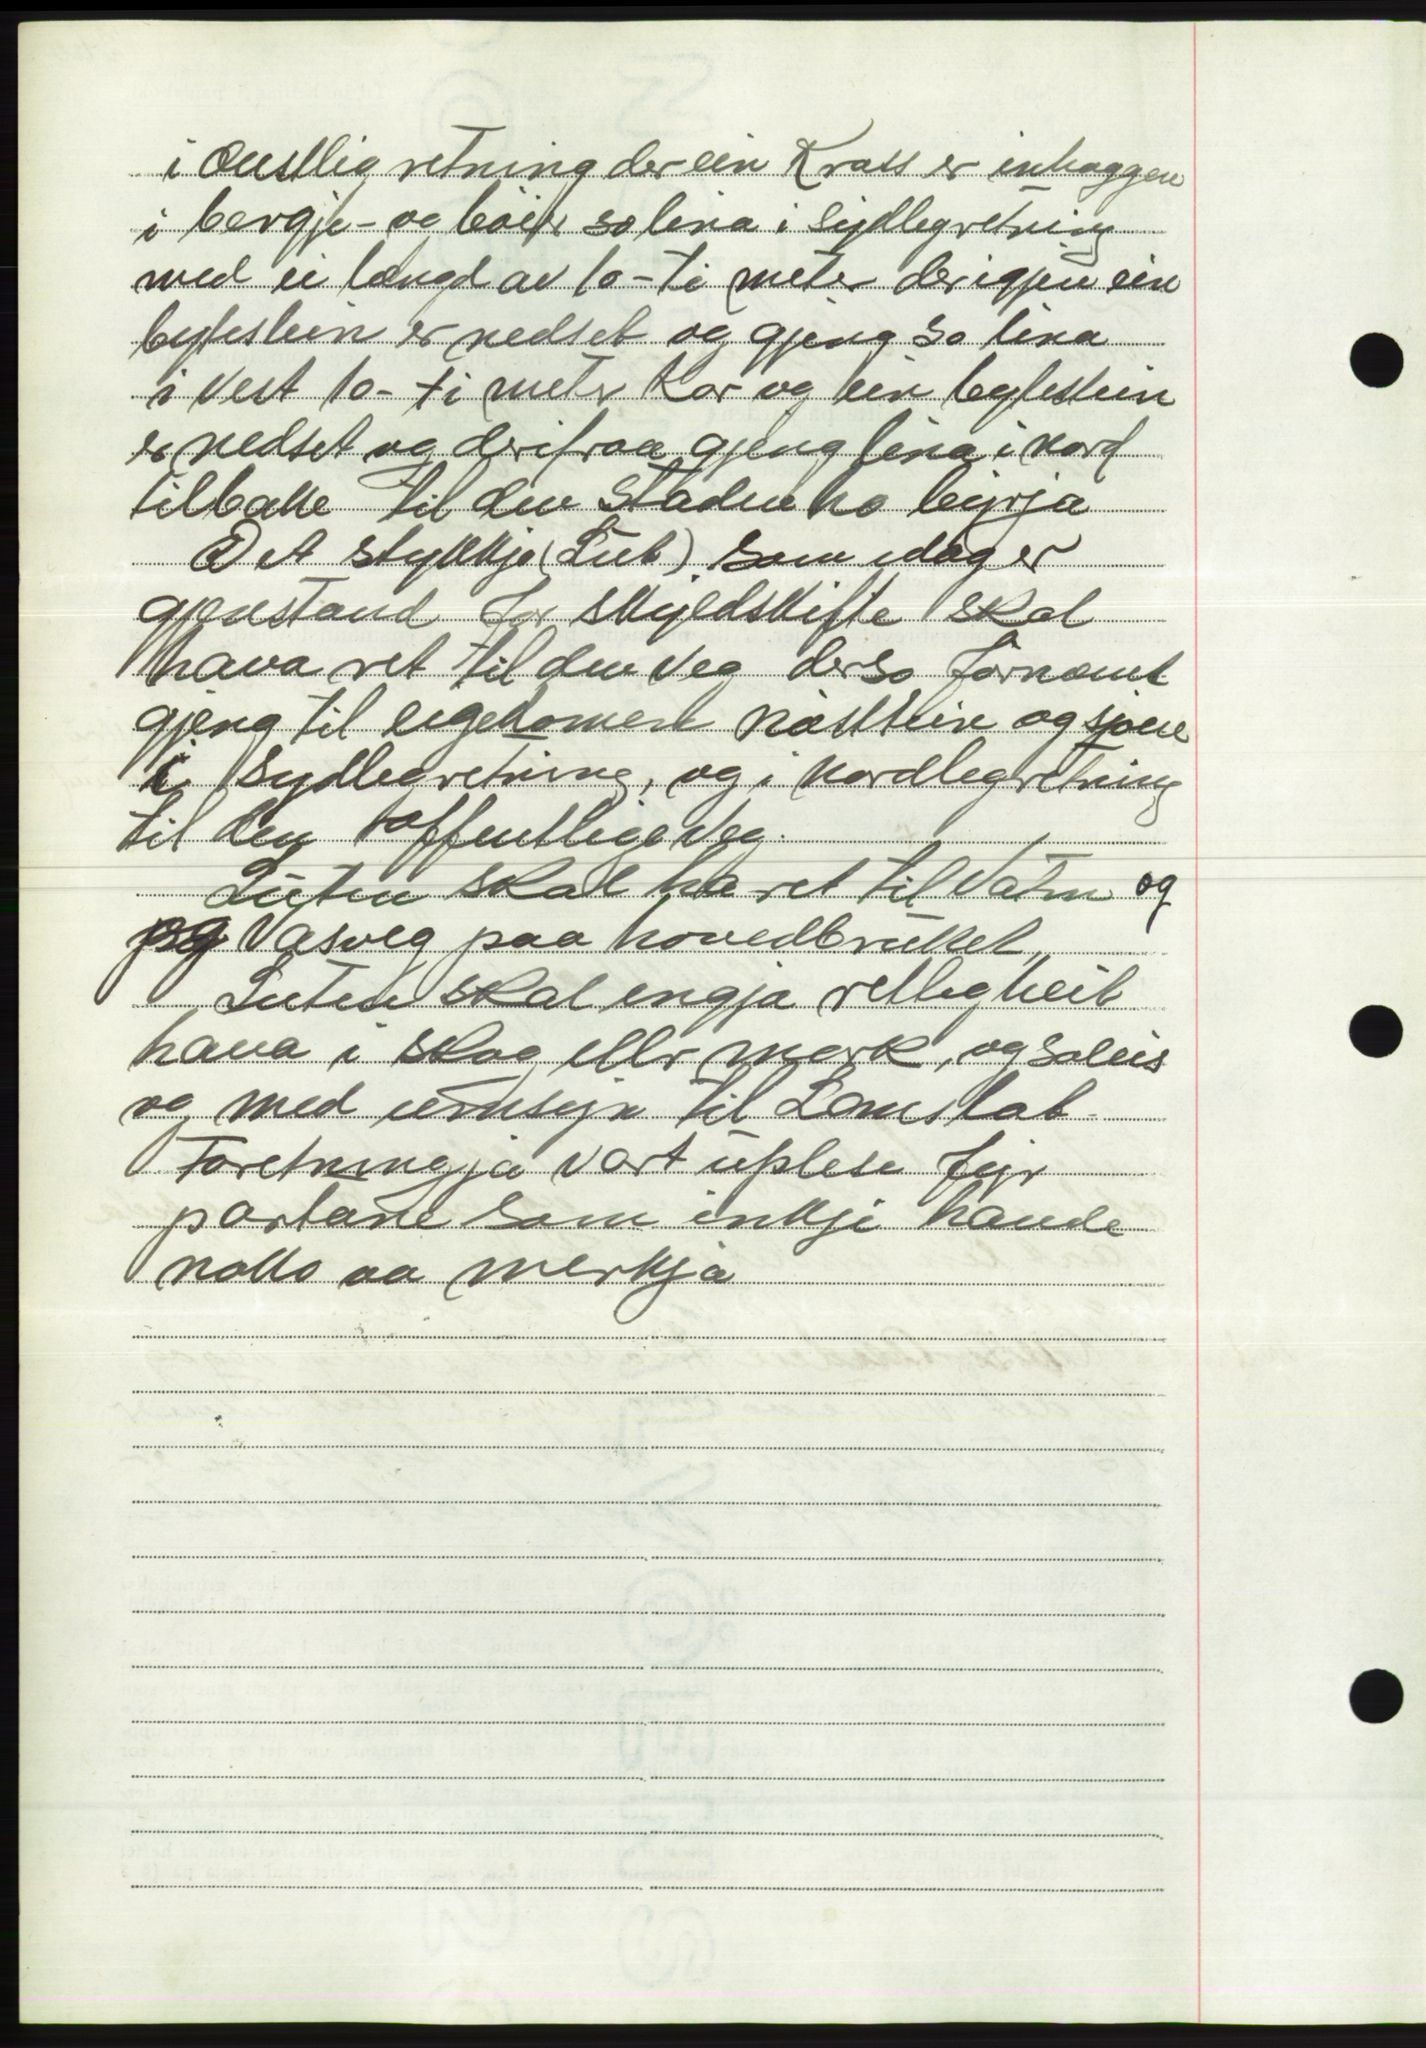 i Oustlig retning der ein Kross er inhoggen
i bergje - og böier so lina i Sydlegretning
med ei længd av 10 - ti meter der igjen ein
bytestein er nedset og gjeng so lina
i Vest 10 - ti meter Kor og ein bytestein
er nedset og derifraa gjeng lina i nord
tilbakke til den Staden ho byrja
Det stykkje (Lut) som idag er
gjenstand for skyldskifte skal
hava ret til den Veg der so fornemt
gjeng til eigekomen og sjöen
i Sydlegretning, og i nordlegretning
til den offentlige Veg.
Luten skal ha ret til Vatn og
Vasveg paa hovedbruket,
Luten skal engja retlegheit
hava i skog eller mork, og soleis
og med umsejn til Lom.lab
Foretningja vart uplese fyr
partane som inkje havde
nokko aa merkja